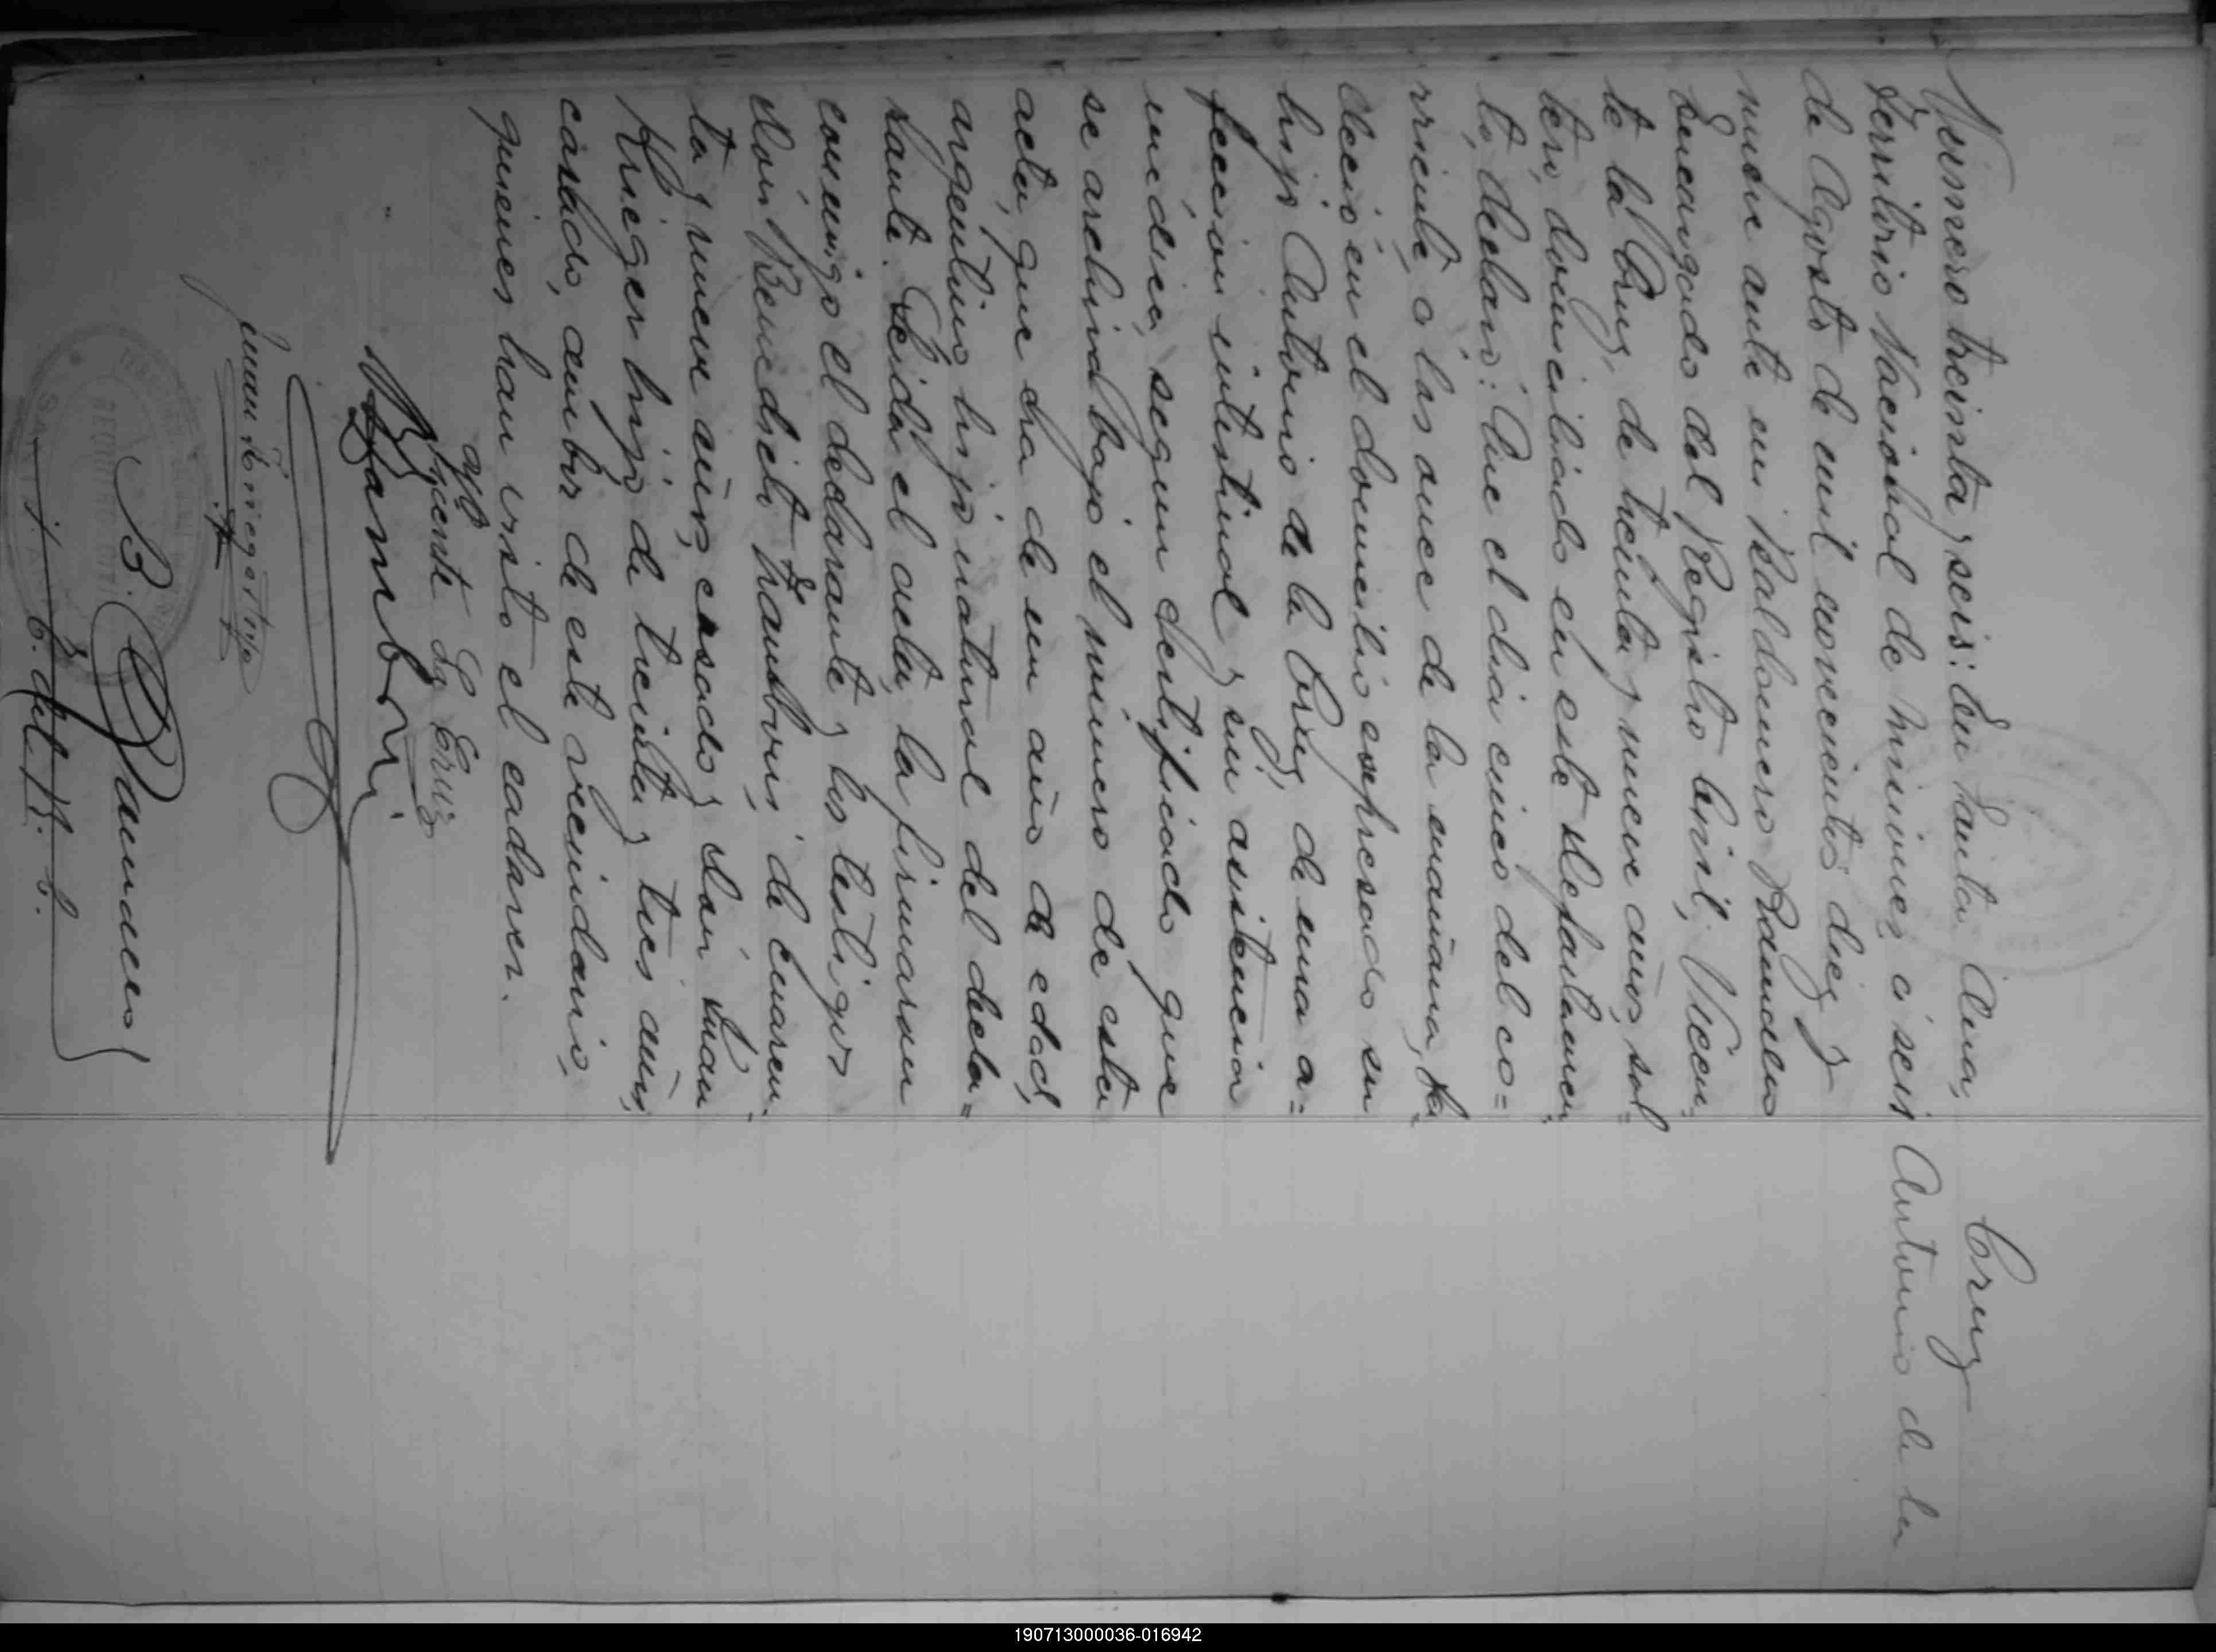 Cruz
Antonio de la
Número treinta y seis: En Santa Ana,
Territorio Nacional de Misiones, a seis
de Agosto de mil novecientos diez y
nueve ante mi Baldomero Ramdeus
Encargado del Registro Civil, Vicen-
te la Cruz, de treinta y nueve años, sol-
tero, domiciliado en este departamen-
to, declaró: Que el dia cinco del co=
rriente, a las once de la mañana, fa-
lleció en el domicilio expresado su
hijo Antonio de la Cruz, de una a=
feccion intestinal y sin asistencia
medica, segun certificado que
se archiva bajo el numero de esta
acta, que era de un año de edad,
argentino, hijo natural del decla=
rante. Leida el acta, la firmaron
conmigo el declarante y los testigos
don Benedicto Zamboni, de cuaren-
ta y nueve años, casado y don Juan
Krieger hijo, de treinta y tres años,
casado, ambos de este vecindario,
quienes han visto el cadaver.
La Cruz
BZamboni
Juan Krieger hijo
B.
E. del R. C.
190713000036-016942